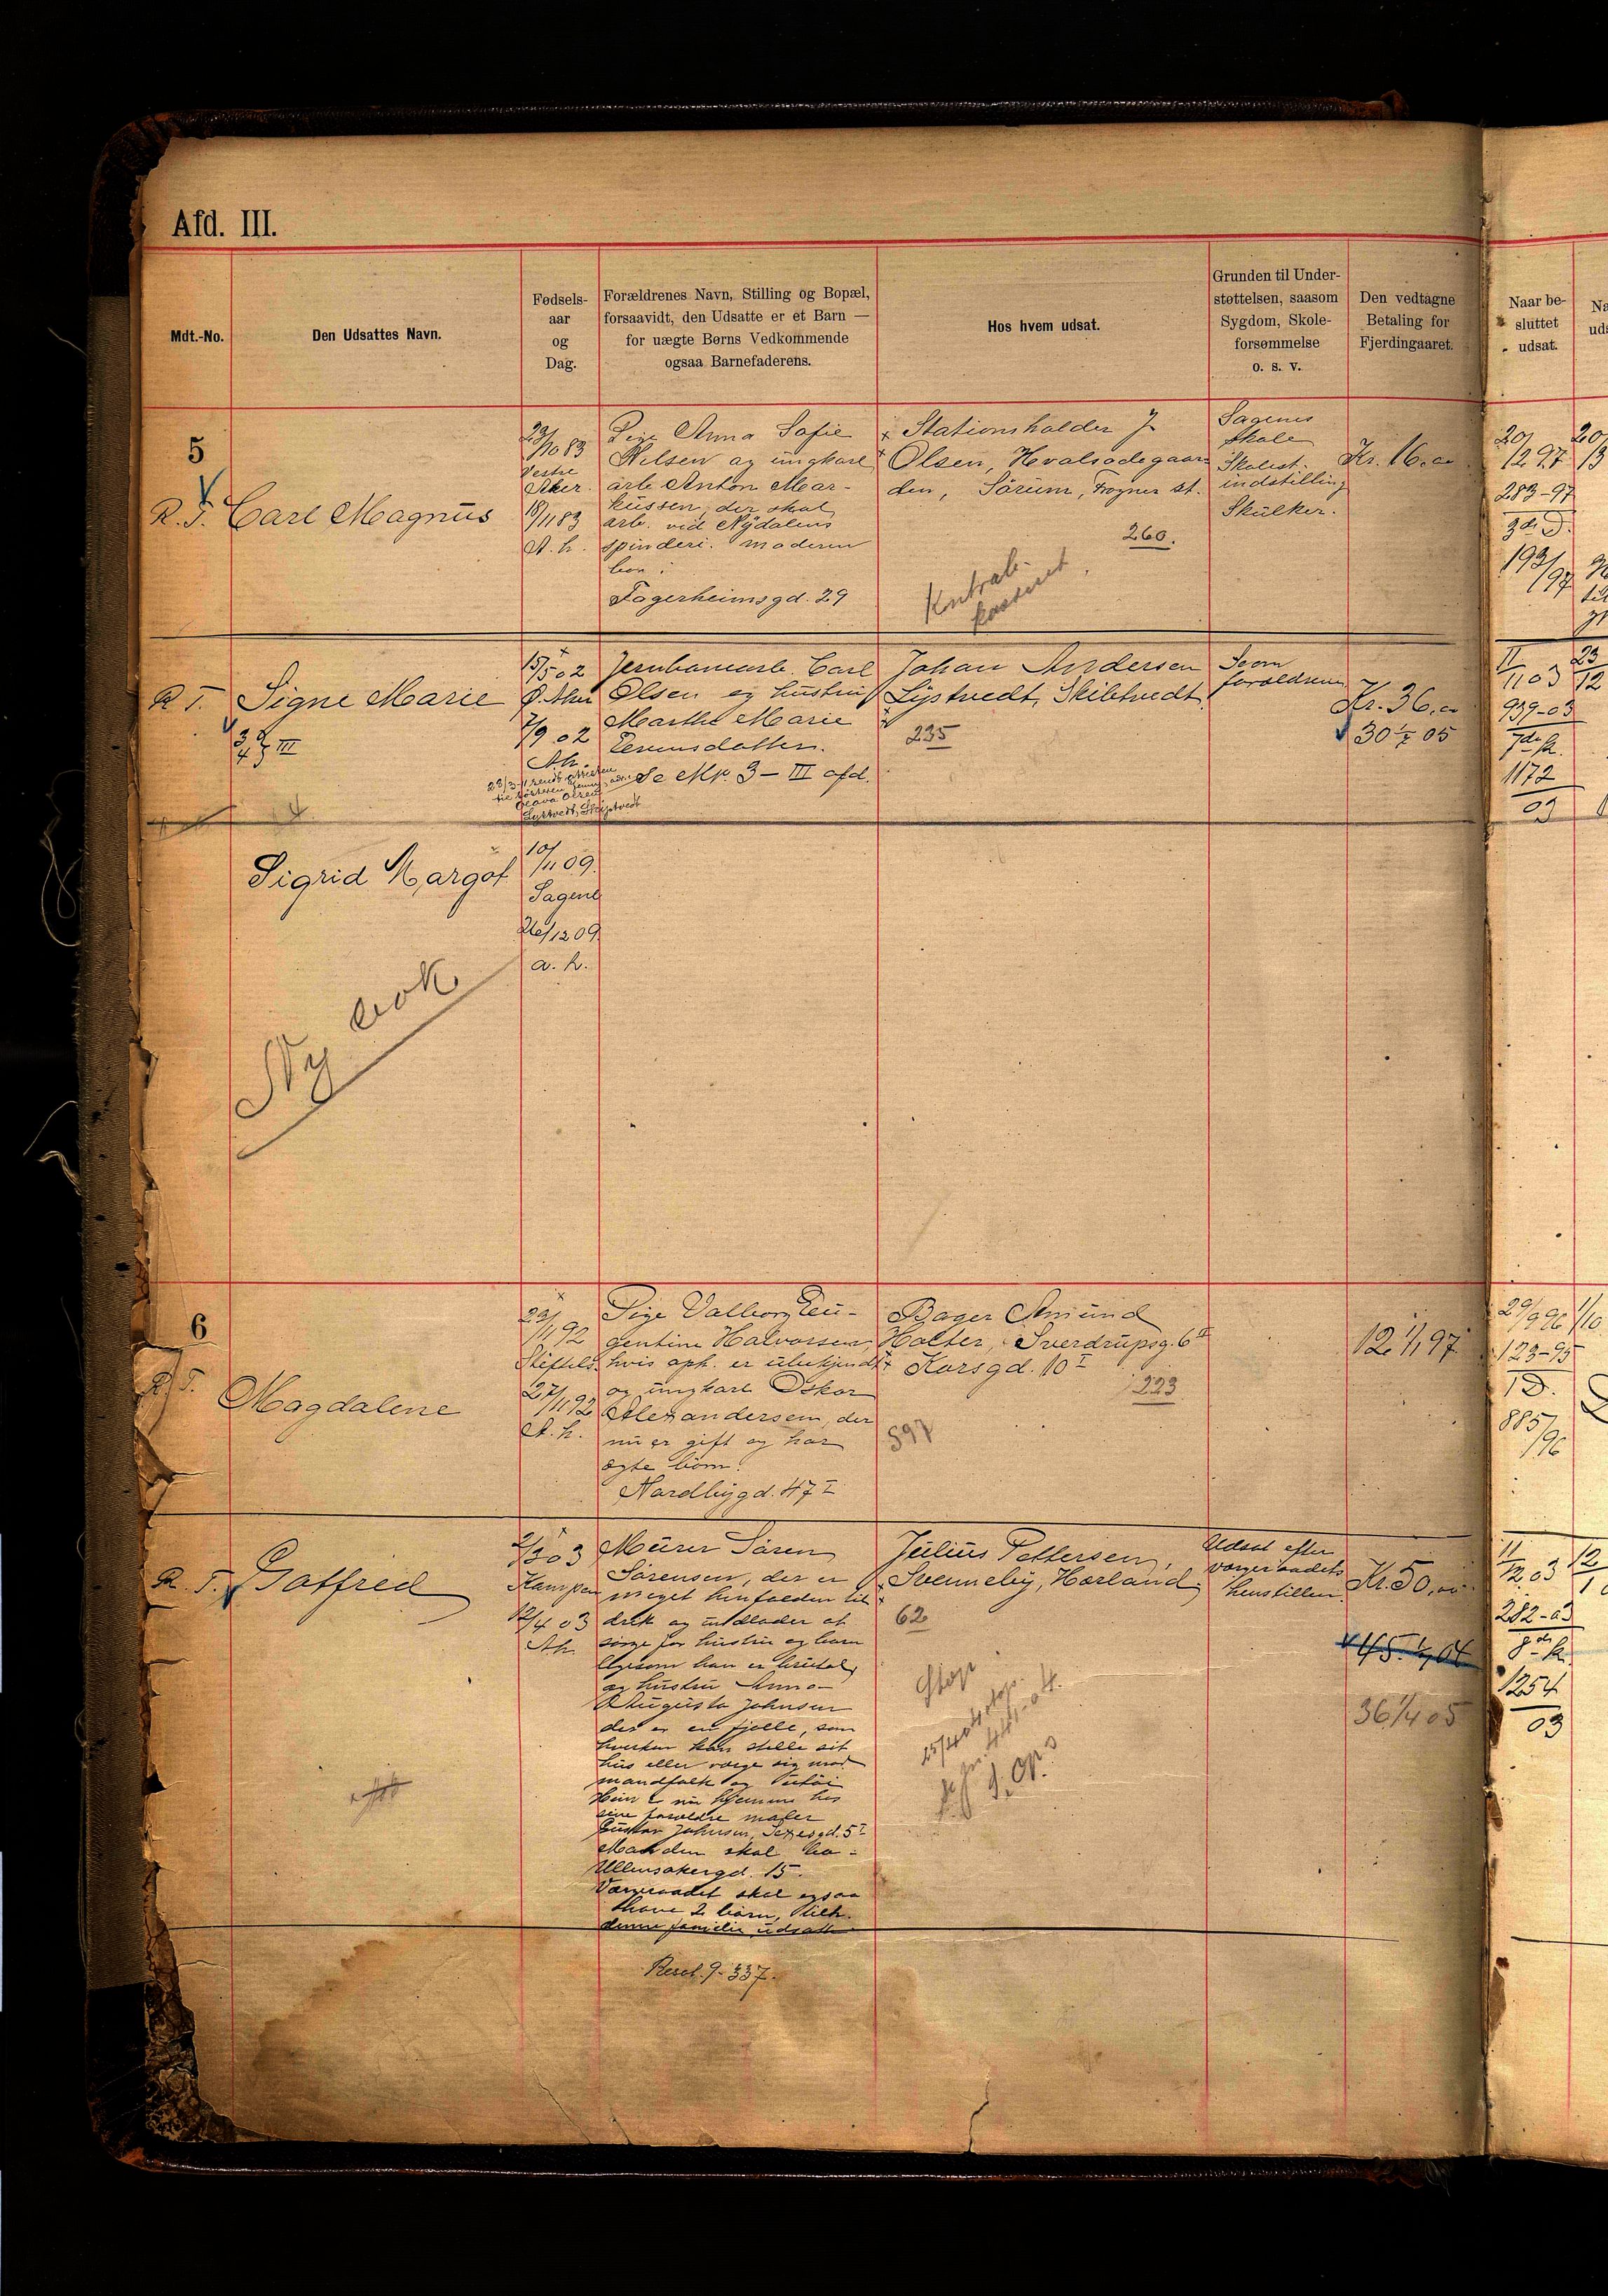 Afd. III.
Mdt.-No.
Den Udsattes Navn.
Fødsels-
aar
og
Dag.
Forældrenes Navn, Stilling og Bopæl,
forsaavidt, den Udsatte er et Barn —
for uægte Børns Vedkommende
ogsaa Barnefaderens.
Hos hvem udsat.
Grunden til Under-
støttelsen, saasom
Sygdom, Skole-
forsømmelse
o. s. v.
Den vedtagne
Betaling for
Fjerdingaaret.
Naar be-
sluttet
udsat.
5
R. T. Carl Magnus
29/10 83
Vestre
Aker.
18/11 83
A. h.
Pige Anna Sofie
Nilsen og ungkarl
arb. Anton Mar-
kussen, der skal
arb. ved Nydalens
spinderi. moderen
bor:
Fagerheimsgd. 29
Stationsholder J.
Olsen, Hvalsødegaar-
den, Sørum, Frogner st.
260.
Sagenes
skole
Skolest.
indstilling
Skulker.
Kr. 16.00
20/12 97
283-97
3die D.
193/97
R T. Signe Marie
15/5 02
Ø. Aker
7/9 02
A.h.
Jernbanearb. Carl
Olsen og hustru
Marthe Marie
Evensdatter.
Se Mk. 3 – III afd.
Johan Andersen
Lystvedt, Skibtvedt
235
Som
forældrene
Kr. 36.00
30 1/2 05
11/11 03
939-03
7de k.
1172/03
Sigrid Margot
10/11 09.
Sagene
26/12 09.
a. h.
Ny bok
6
R. T.
Magdalene
22/1 92
Stiftels.
27/11 92
A. h.
Pige Valborg Eu-
gentine Halvorsen,
hvis oph. er ubekjendt
og ungkarl Oskar
Alexandersen, der
nu er gift og har
ægte børn.
Nordbygd. 47 I
Bager Amund
Holter, Sverdrupsg. 6 II
Korsgd. 10 I
223
597
12 1/1 97
29/9 96
123-95
1 D.
885/96
R. T. Gotfred
2/3 03
Kampen
12/4 03
A.h.
Murer Søren
Sørensen, der er
meget henfalden til
drik og undlader at
sørge for hustru og barn
ligesom han er brutal,
og hustru Anna
Augusta Johnsen
der er en fjolle, som
hverken kan stelle sit
hus eller værge sig mod
mandfolk og
Hun er nu hjemme hos
sine forældre maler
Gustav Johnsen, Sexesgd. 5 I
Manden skal bo:
Ullensakergd. 15.
Vergeraadet skal ogsaa
have 2 børn, tilh.
denne familie, udsatte
Resol. 9-337.
Julius Pettersen,
Svenneby, Hærland
62
Stop
Udsat efter
vergeraadets
henstillen.
Kr. 50.00
45. 1/7 04
36 1/4 05
11/12 03
282-03
8de k.
1254/03